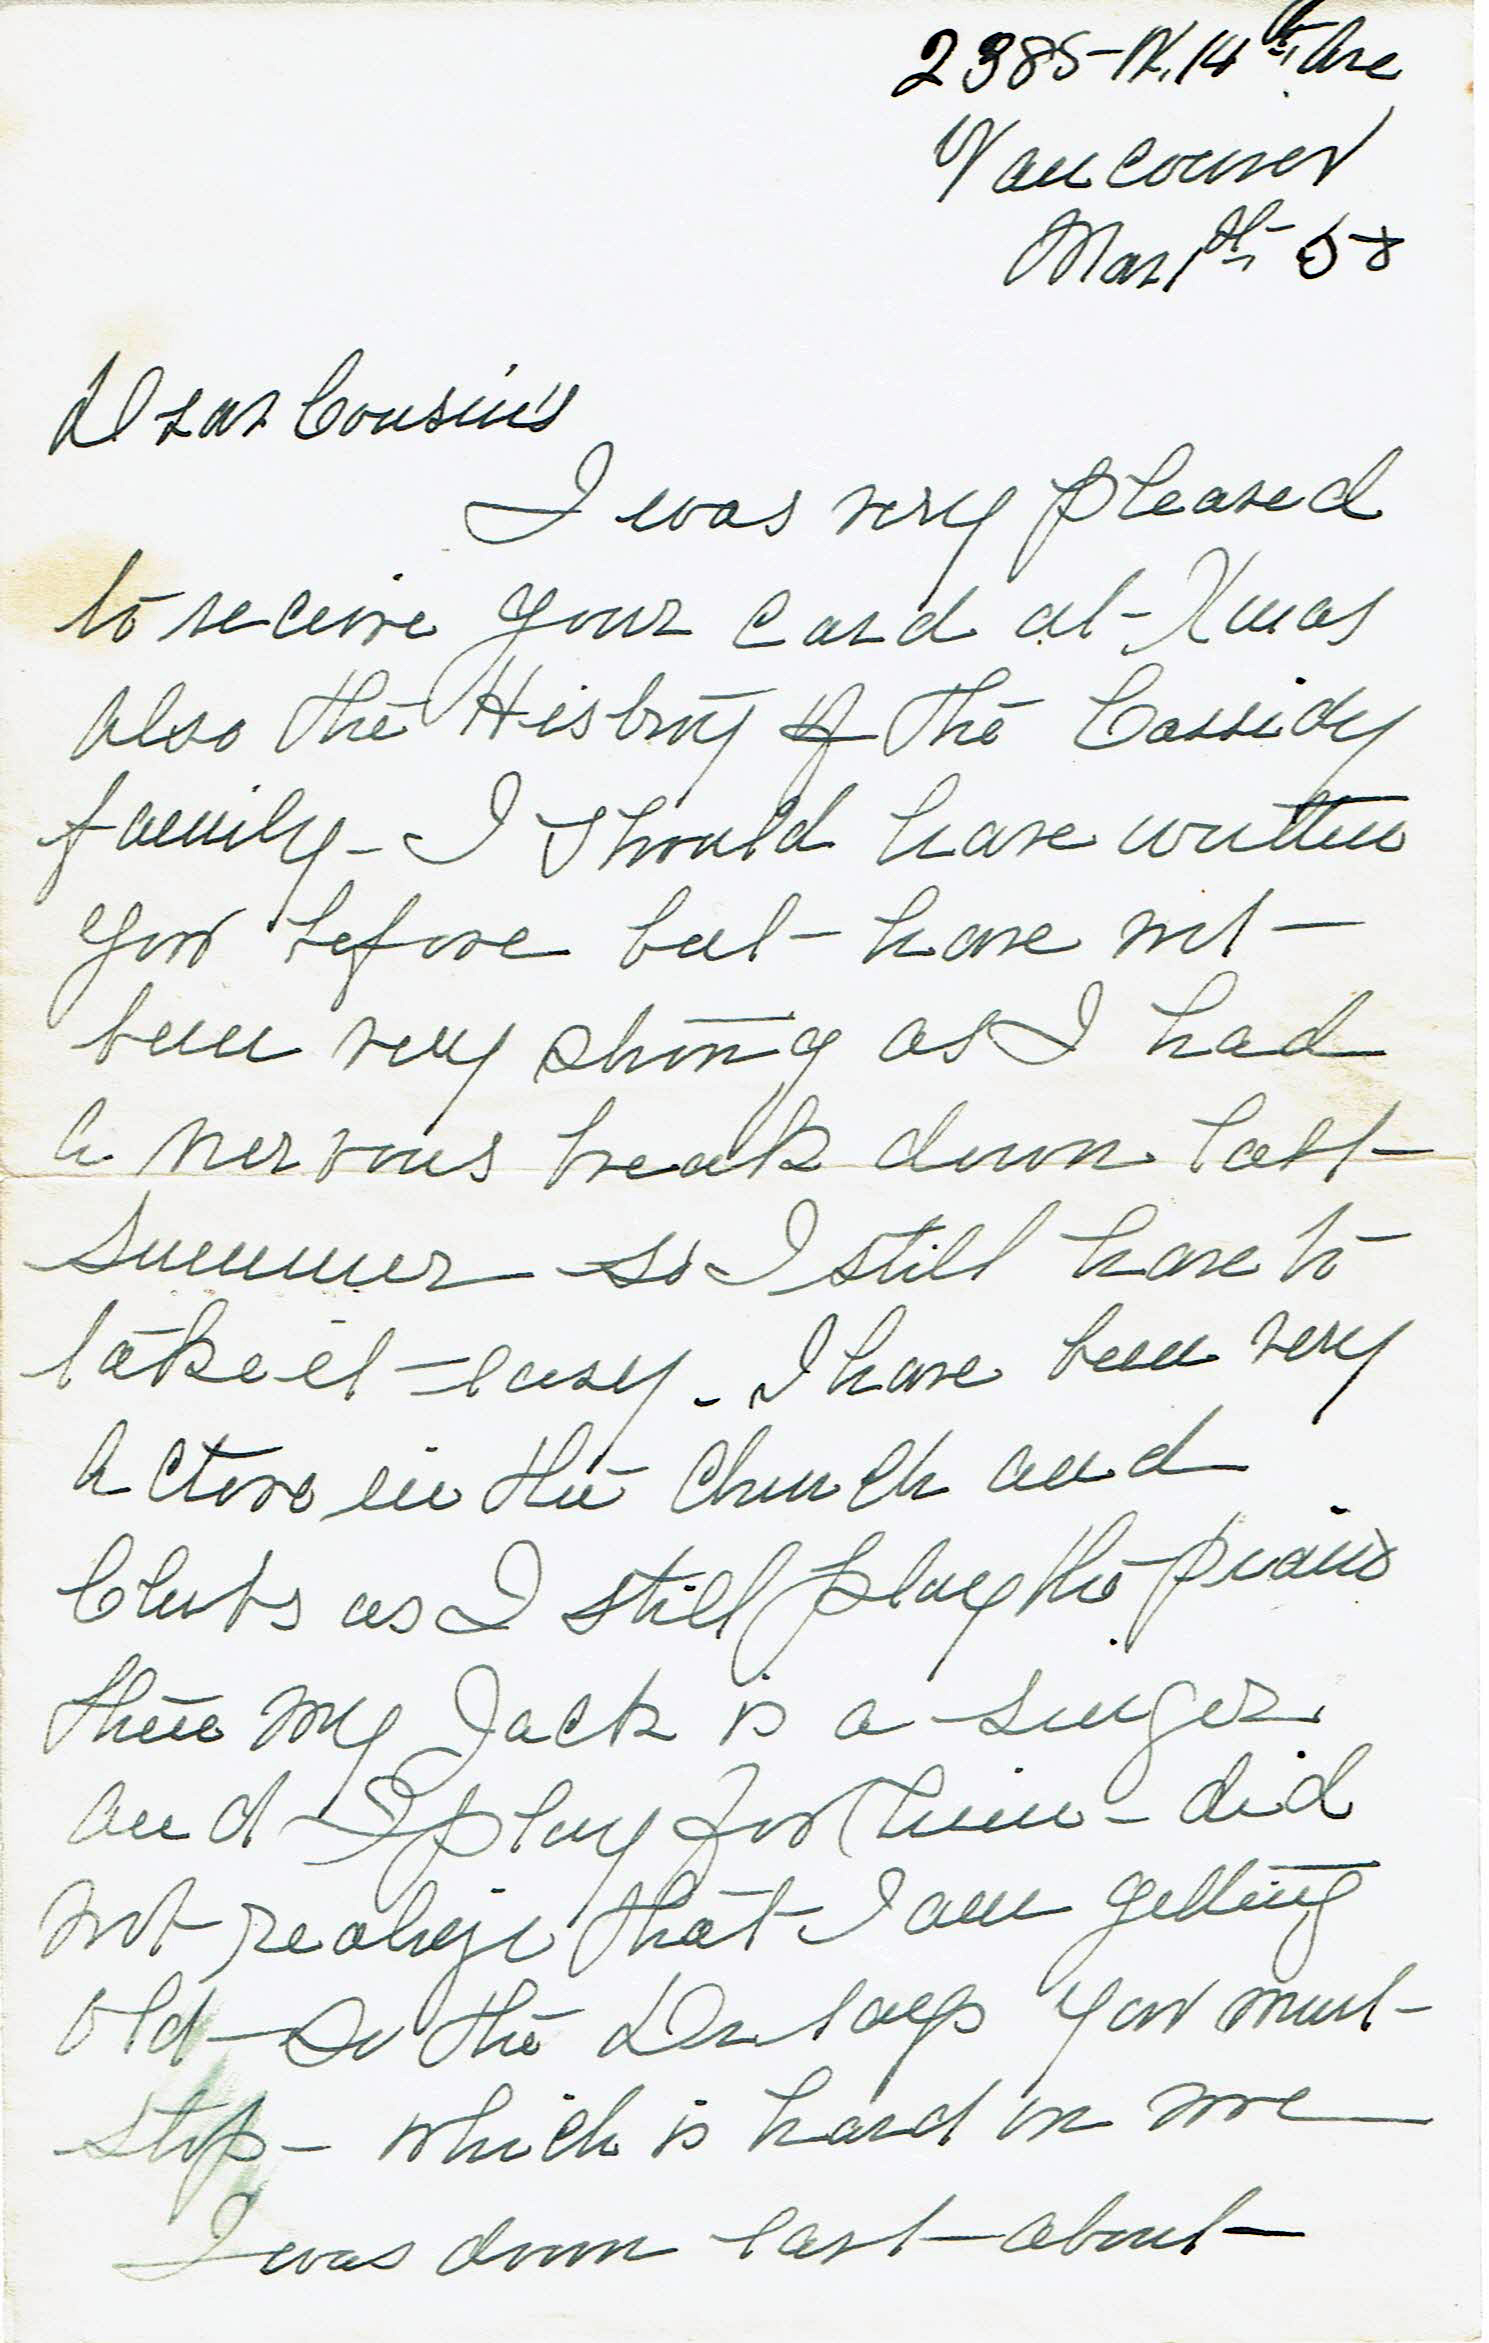 2385-W. 14th Ave
Vancouver
Mar 1th 58
Dear Cousin's
I was very pleased
to receive your card at Xmas
also the History of the Cassidy
family - I should have written
you before but have not
been very strong as I had
a nervous break down last
summer so I still have to
take it easy. I have been very
active in the Church and
Clubs as I still play the piano
there my Jack is a singer
and I play for him - did
not realize that I am getting
old - so the Dr says you must
stop - which is hard on me
I was down east about